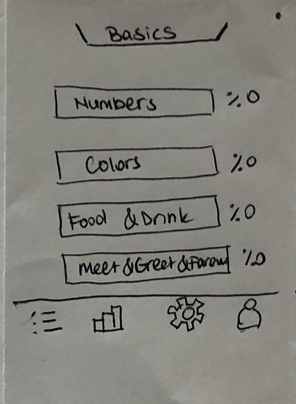 Basics
Numbers %0
Colors %0
Food & Drink %0
Meet & Greet & Farew %0